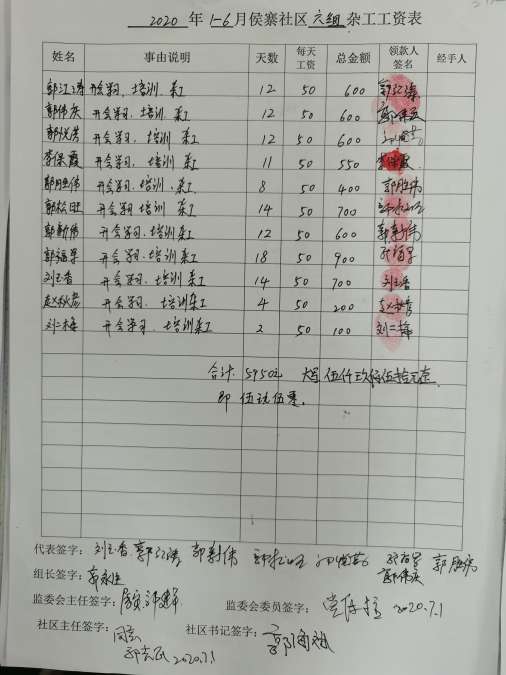 2020 年 1-6月侯寨社区 六组 杂工工资表
姓名 事由说明 天数 每天工资 总金额 领款人签名 经手人
郭江涛 开会学习、培训 杂工 12 50 600 郭江涛
郭伟庆 开会学习、培训 杂工 12 50 600 郭伟庆
郭悦芳 开会学习、培训 杂工 12 50 600
李保霞 开会学习、培训 杂工 11 50 550 李保霞
郭胜伟 开会学习、培训、杂工 8 50 400 郭胜伟
郭松旺 开会学习、培训 杂工 14 50 700 郭松旺
郭新伟 开会学习、培训 杂工 12 50 600 郭新伟
郭福学 开会学习、培训 杂工 18 50 900
刘玉香 开会学习、培训 杂工 14 50 700 刘玉香
赵秋彦 开会学习、培训杂工 4 50 200 赵秋彦
刘二梅 开会学习、培训 杂工 2 50 100 刘二梅
合计: 5950元 大写 伍仟玖佰伍拾元整
即 伍玖伍零.
代表签字: 刘玉香 郭江涛 郭新伟 郭松旺 郭伟庆 郭胜伟
组长签字:
监委会主任签字: 监委会委员签字: 2020.7.1
社区主任签字: 社区书记签字:
2020.7.1